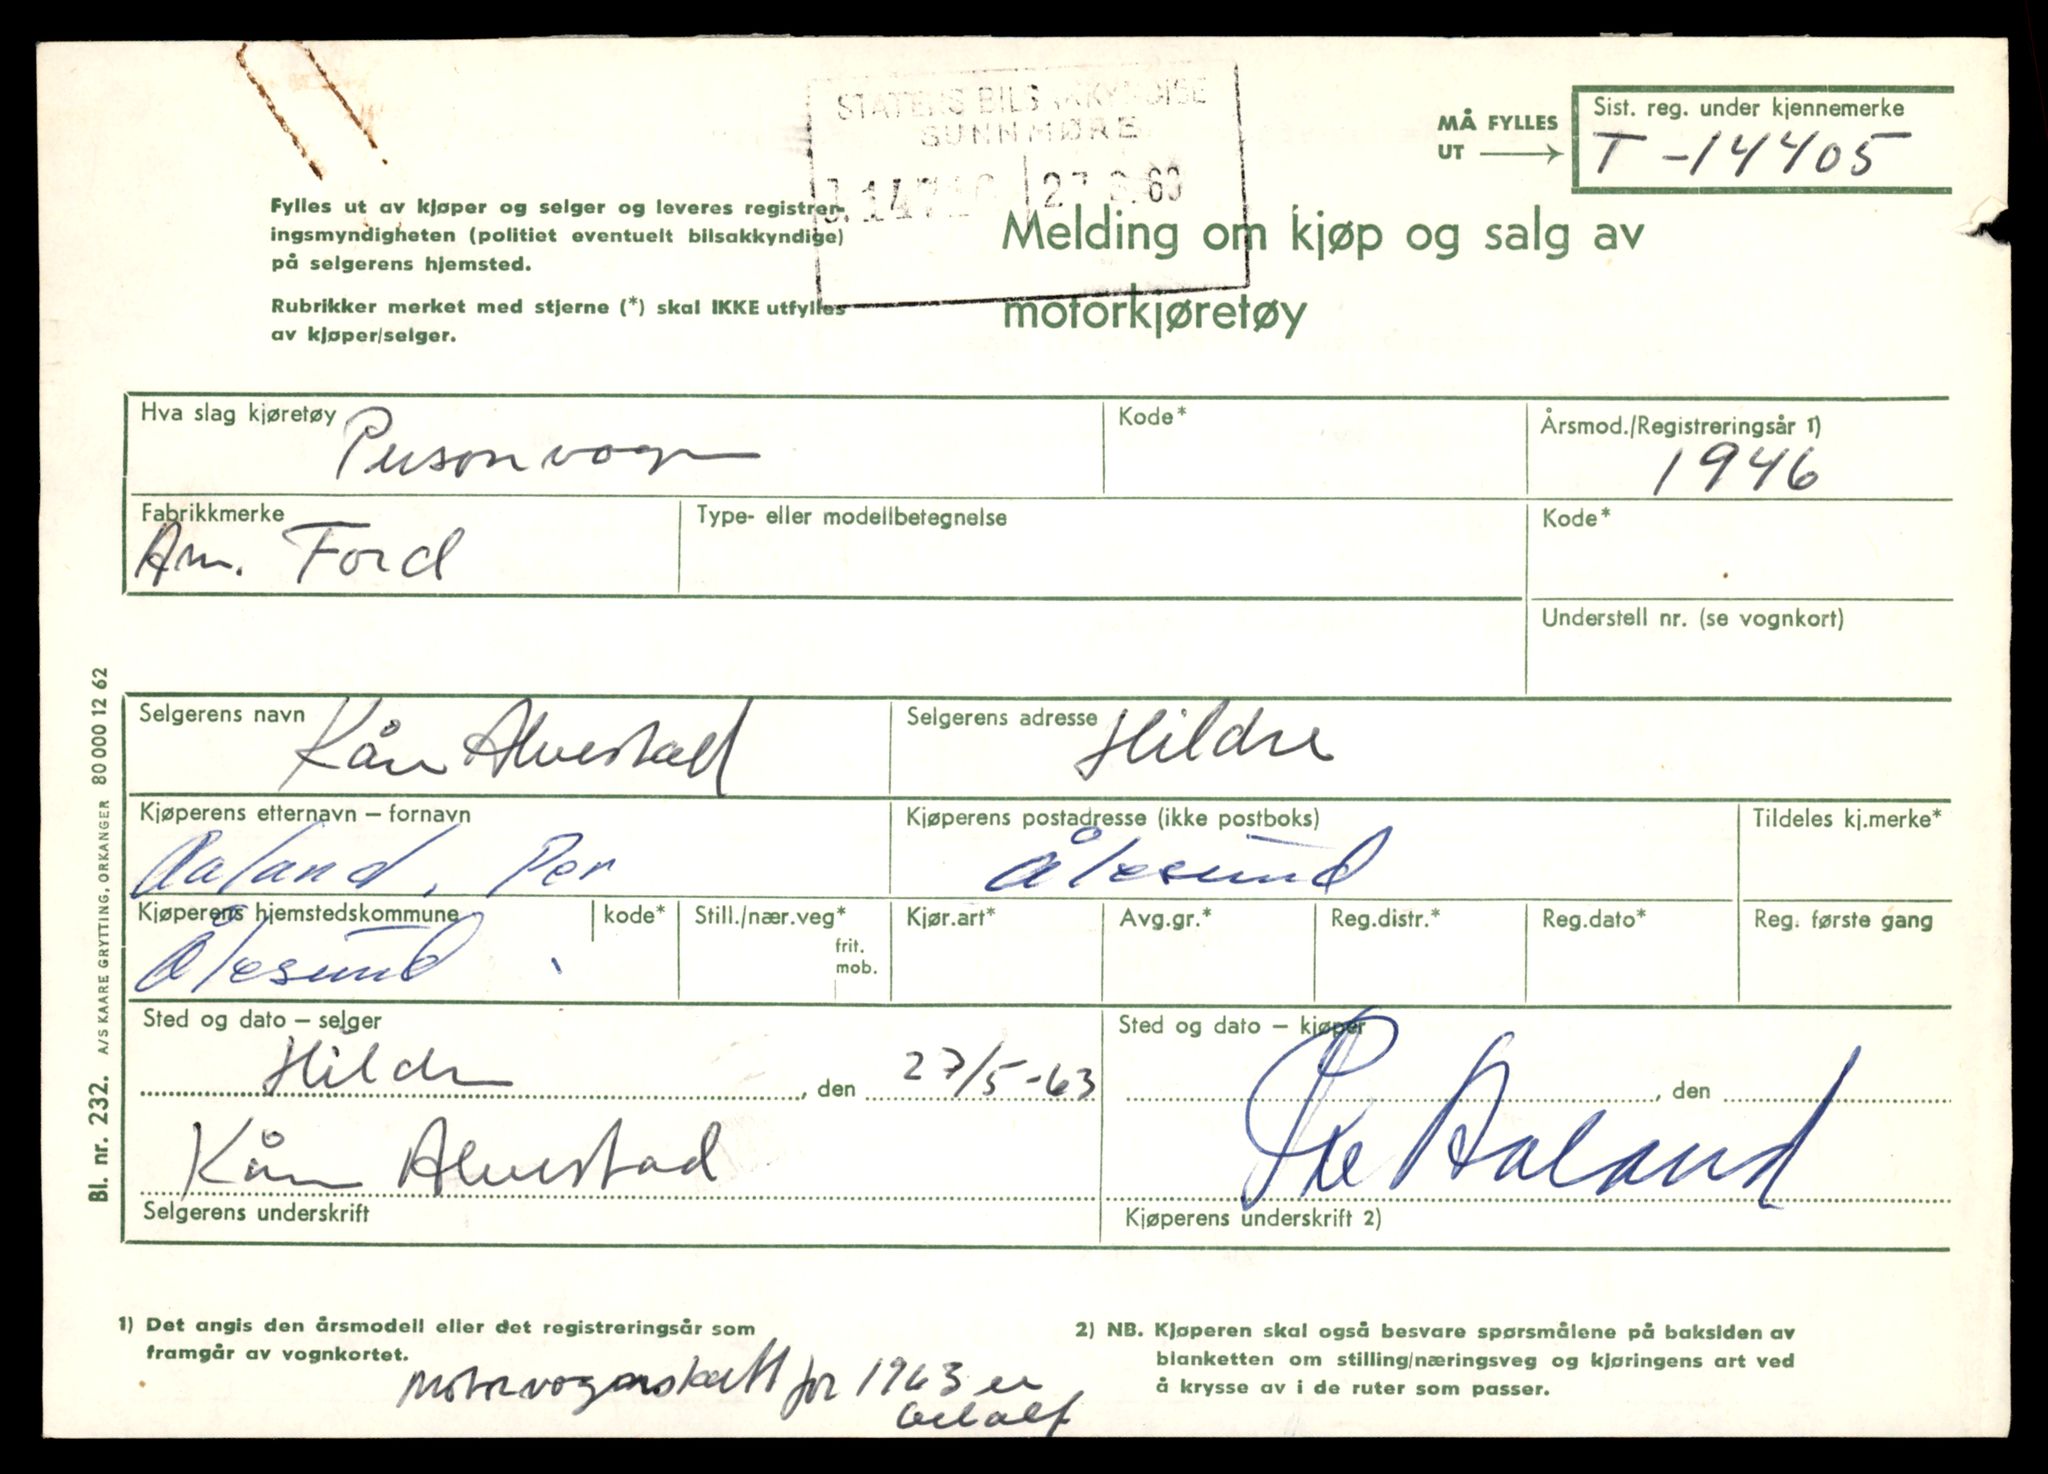 STATENS BILSAKKYNDIGE
SUNNMØRE
MÅ FYLLES
UT
Sist. reg. under kjennemerke
T-14405
Fylles ut av kjøper og selger og leveres registrer-
ingsmyndigheten (politiet eventuelt bilsakkyndige)
på selgerens hjemsted.
Rubrikker merket med stjerne (*) skal IKKE utfylles
av kjøper/selger.
Melding om kjøp og salg av
motorkjøretøy
Hva slag kjøretøy
Personvogn
Kode*
Årsmod./Registreringsår 1)
1946
Fabrikkmerke
Am. Ford
Type- eller modellbetegnelse
Kode*
Understell nr. (se vognkort)
Selgerens navn
Kåre Alvestad
Selgerens adresse
Hildre
Kjøperens etternavn – fornavn
Aaland, Per
Kjøperens postadresse (ikke postboks)
Ålesund
Tildeles kj.merke*
Kjøperens hjemstedskommune
Ålesund
kode*
Still./nær.veg*
frit.
mob.
Kjør.art*
Avg.gr.*
Reg.distr.*
Reg.dato*
Reg. første gang
Sted og dato – selger
Hildre, den 27/5-63
Kåre Alvestad
Selgerens underskrift
Sted og dato – kjøper
, den
Per Aaland
Kjøperens underskrift 2)
1) Det angis den årsmodell eller det registreringsår som
framgår av vognkortet.
2) NB. Kjøperen skal også besvare spørsmålene på baksiden av
blanketten om stilling/næringsveg og kjøringens art ved
å krysse av i de ruter som passer.
Motorvognskatt for 1963 er
betalt
Bl. nr. 232. A/S KAARE GRYTTING, ORKANGER 80 000 12 62